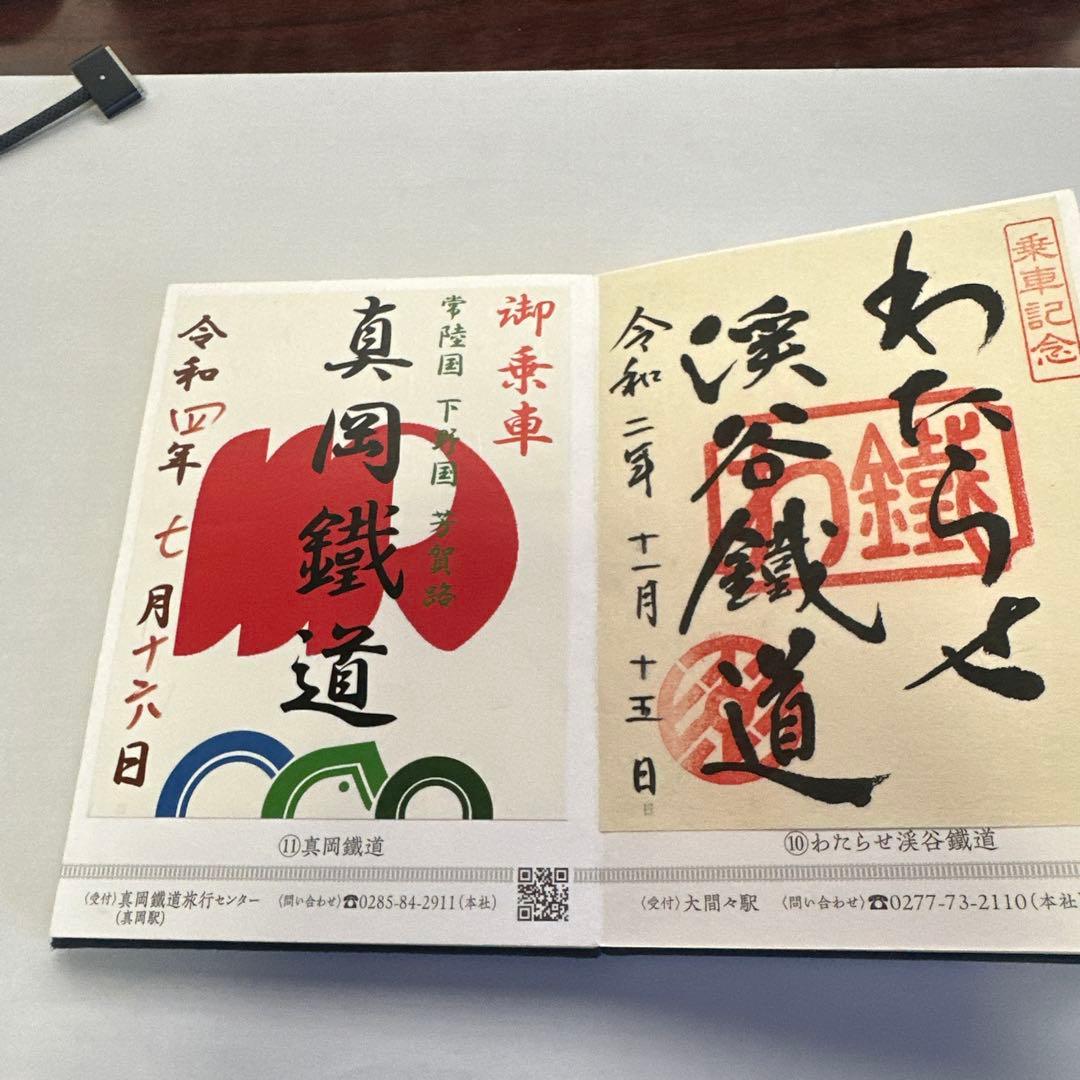 乗車記念
わたらせ
渓谷鐵道
わ鐵
令和二年十一月十五日
日
⑩わたらせ渓谷鐵道
〈受付〉大間々駅 〈問い合わせ〉☎0277-73-2110(本社)
御乗車
常陸国 下野国 芳賀路
真岡鐵道
令和四年七月十六日
⑪真岡鐵道
〈受付〉真岡鐵道旅行センター 〈問い合わせ〉☎0285-84-2911(本社)
(真岡駅)